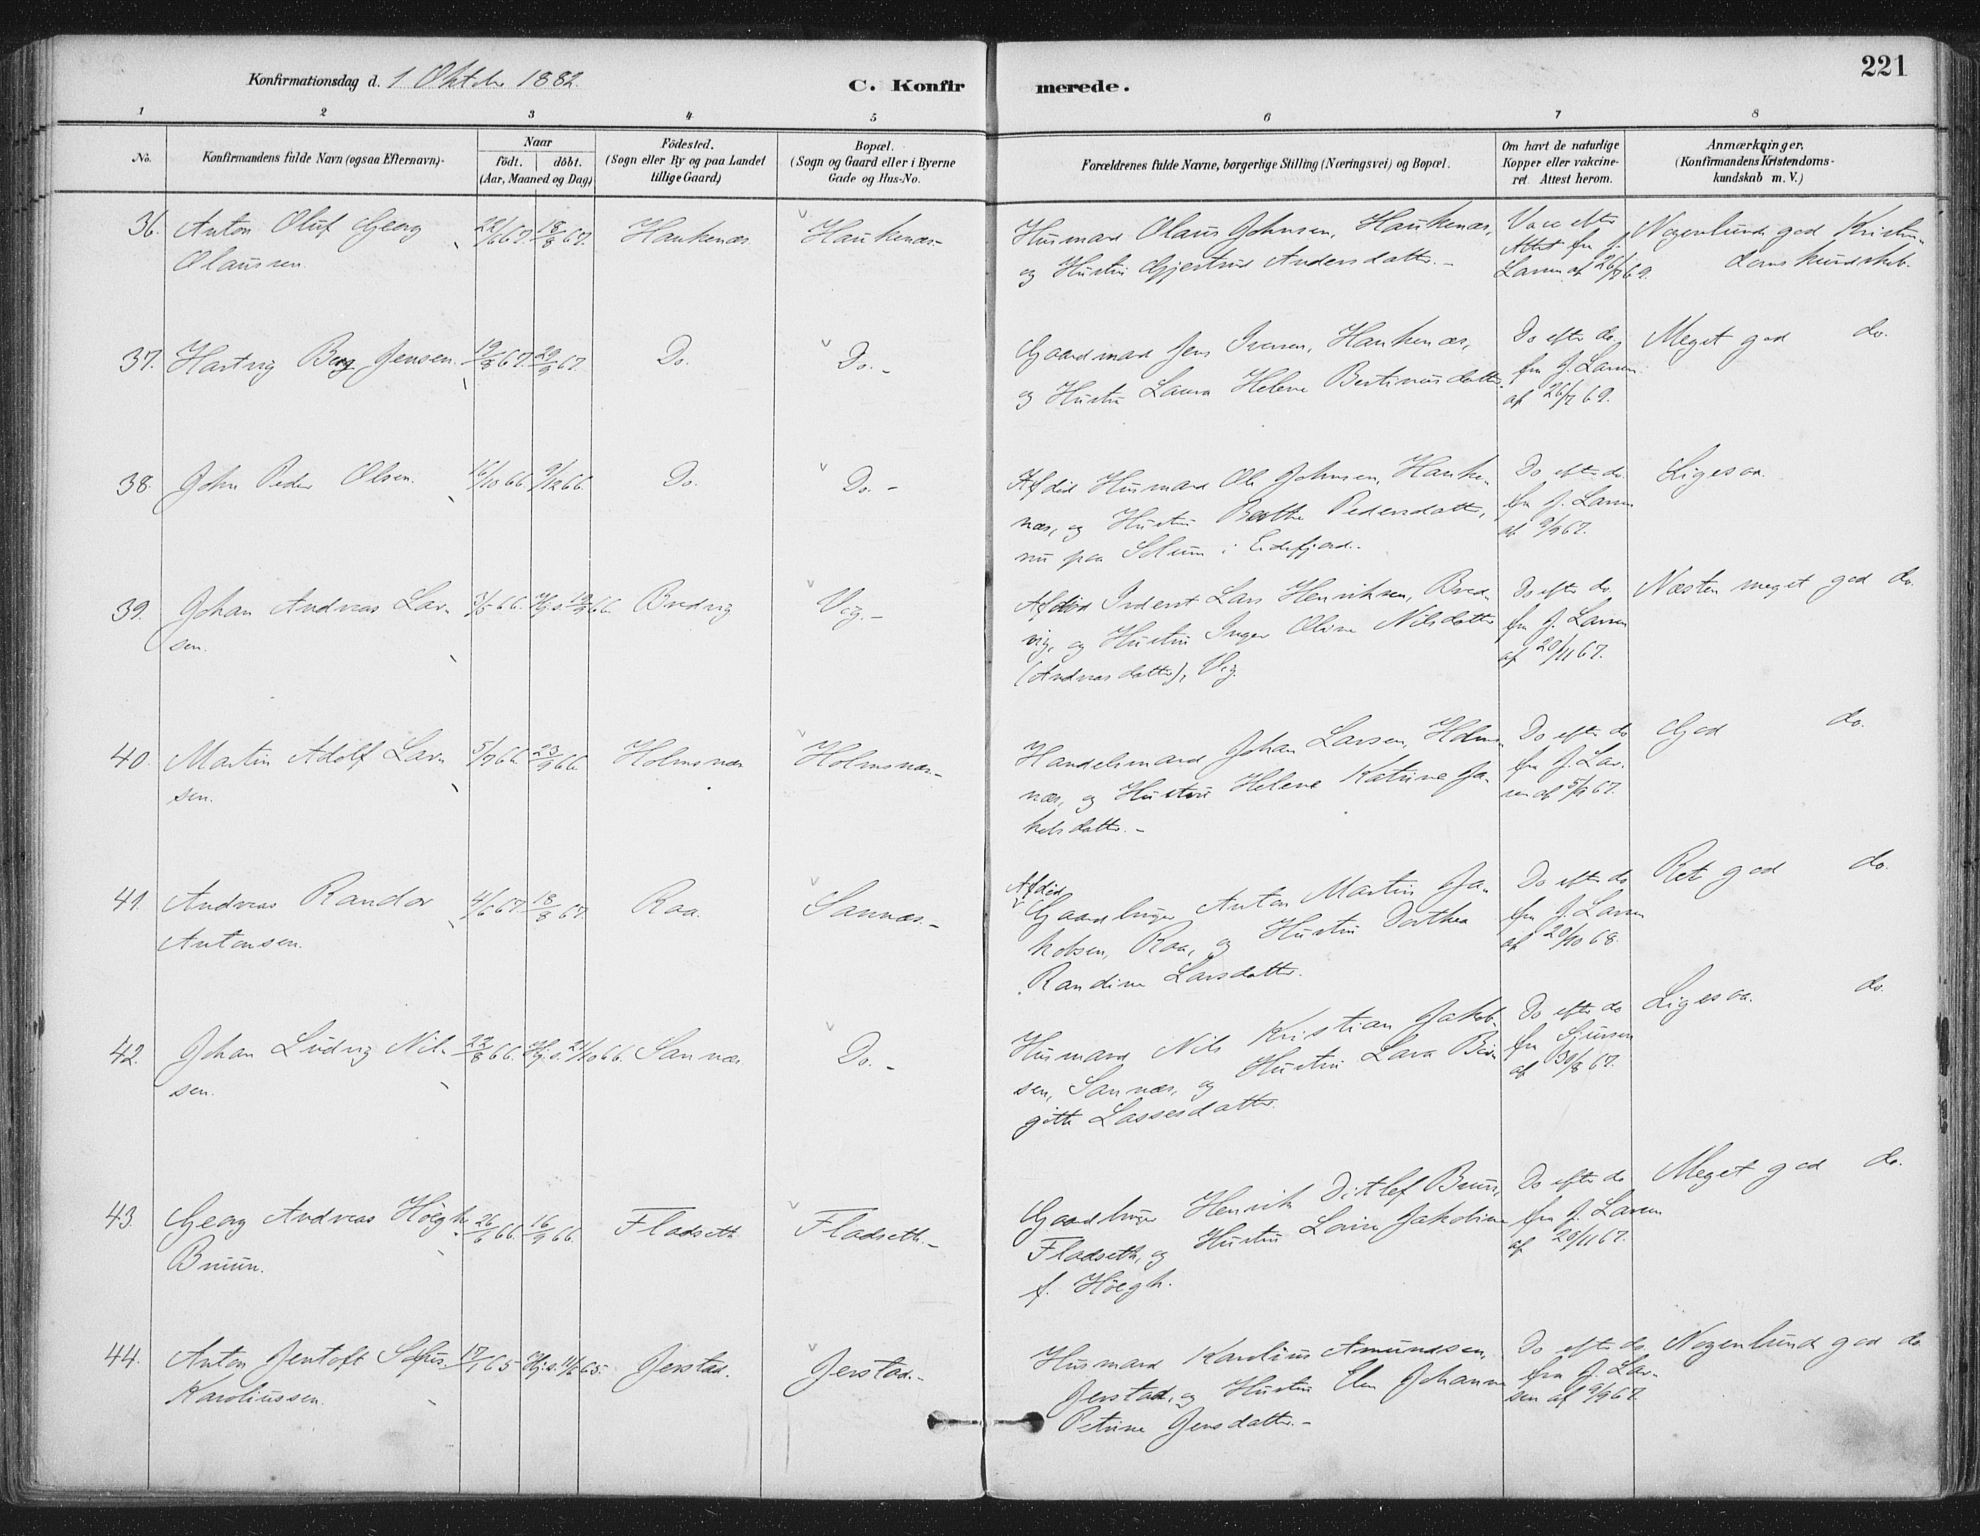 221
Konfirmationsdag d. 1 Oktober 1882.
C. Konfirmerede.
1 2 3 4 5 6 7 8
No.
Konfirmandens fulde Navn (ogsaa Efternavn).
Naar
födt. döbt.
(Aar, Maaned og Dag)
Födested.
(Sogn eller By og paa Landet
tillige Gaard)
Bopæl.
(Sogn og Gaard eller i Byerne
Gade og Hus-No.
Forældrenes fulde Navne, borgerlige Stilling (Næringsvei) og Bopæl.
Om havt de naturlige
Kopper eller vakcine-
ret. Attest herom.
Anmærkninger.
(Konfirmandens Kristendoms-
kundskab m. V.)
36. Anton Oluf Georg
Olaussen.
22/6 67. 18/8 67. Haukenæs Haukenæs.
Husmand Olaus Johnsen, Haukenæs,
og Hustru Gjertrud Andersdatter.
Vacc efter
Attest fra J.
Larsen af 26/7 69.
Nogenlunde god Kristen-
domskundskab.
37. Hartvig Berg Jensen.
19/8 67. 29/9 67. Do. Do.
Gaardmand Jens Iversen, Haukenæs,
og Hustru Laura Helene Bertinusdatter.
Do efter do
fra J. Larsen
af 26/7 69.
Meget god do.
38. John Peder Olsen.
16/10 66. 9/12 66. Do. Do.
Afdöd Husmand Ole Johnsen, Hauke-
næs, og Hustru Berthe Pedersdatter,
nu paa Sellum i Eidsfjord.
Do efter do.
fra J. Larsen
af 9/9 67.
Ligesaa.
39. Johan Andreas Lar-
sen.
3/5 66. Hj.d. 19/8 66. Bredvig Vig.
Afdöd Inderst Lars Henriksen, Bred-
vig, og Hustru Inger Oline Nilsdatter
(Andreasdatter), Vig.
Do efter do.
fra J. Larsen
af 20/11 67.
Næsten meget god do.
40. Martin Adolf Lar-
sen.
5/7 66. 23/9 66. Holmsnæs Holmsnæs.
Handelsmand Johan Larsen, Holms-
næs, og Hustru Helene Katrine Ja-
kobsdatter.
Do efter do
fra J. Lar-
sen af 5/9 67.
God do.
41. Andreas Randor
Antonsen.
4/6 67. 18/8 67. Raa. Sannæs.
Afdöd
Gaardbruger Anton Martin Ja-
kobsen, Raa, og Hustru Dorthea
Randine Larsdatter.
Do efter do
fra J. Larsen
af 20/10 68.
Ret god do.
42. Johan Ludvig Nil-
sen.
22/8 66. Hj.d. 21/10 66. Sannæs. Do.
Husmand Nils Kristian Jakob-
sen, Sannæs, og Hustru Lava Bir-
gitte Lassesdatter.
Do efter do
fra Sjursen
af 30/8 67.
Ligesaa. do.
43. Georg Andreas Höegh
Bruun.
26/6 66. 16/9 66. Fladseth Fladseth.
Gaardbruger Henrik Ditlef Bruun,
Fladseth, og Hustru Lovise Jakobine
f. Höegh.
Do efter do
fra J. Larsen
af 20/11 67.
Meget god do.
44. Anton Jentoft Sofus
Karoliussen.
17/1 65. Hj.d. 11/6 65. Jerstad. Jerstad.
Husmand Karolius Amundsen,
Jerstad, og Hustru Elen Johanna
Petrine Jensdatter.
Do efter do
fra J. Lar-
sen af 9/9 67.
Nogenlunde god do